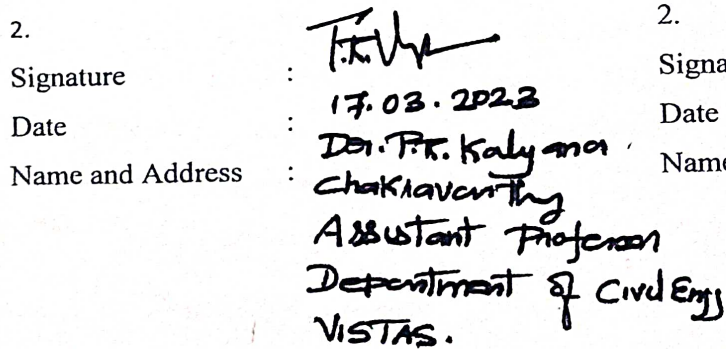 2.
Signature :
Date : 17.03.2023
Name and Address : Dr. P.K. Kalyana
Chakravarthy
Assistant Professor
Department of Civil Engg
VISTAS.
2.
Signa
Date
Name